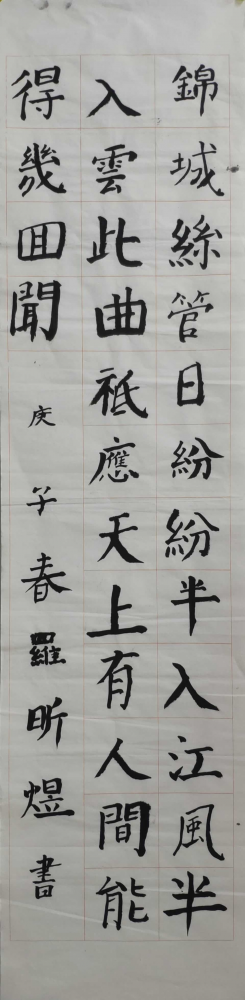 錦城絲管日紛紛半入江風半
入雲此曲祗應天上有人間能
得幾回聞
庚子春羅昕煜書